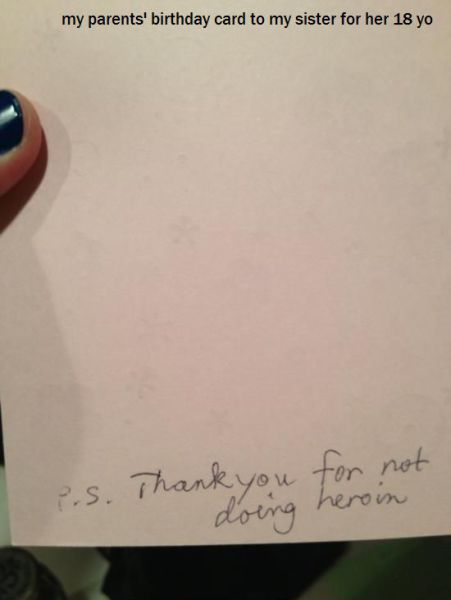 my parents' birthday card to my sister for her 18 yo
P.S. Thank you for not
doing heroin